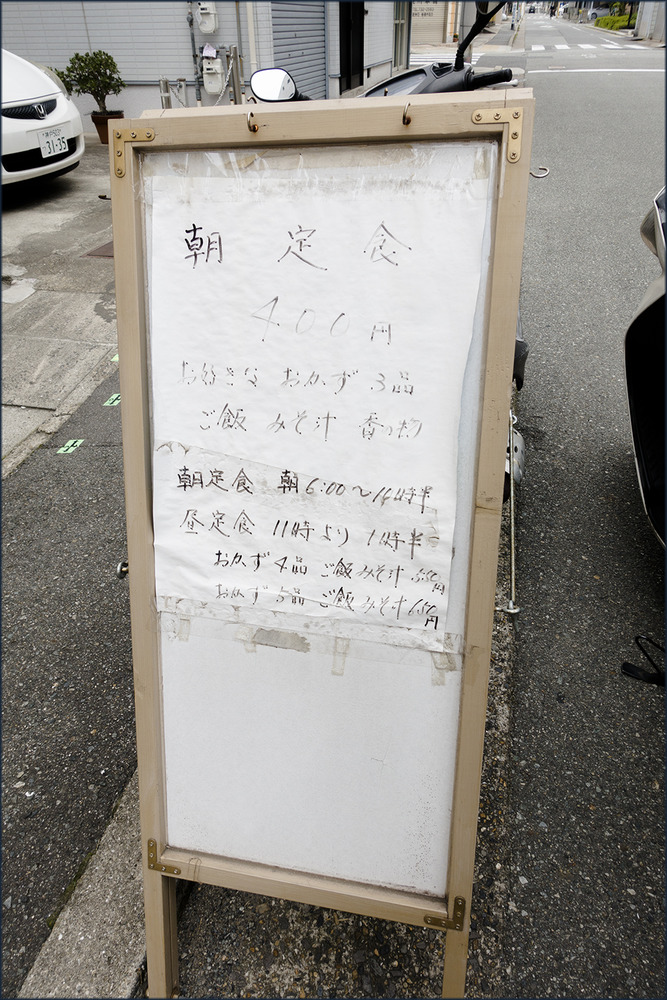 朝定食
400円
お好きな おかず 3品
ご飯 みそ汁 香の物
朝定食 朝6:00～
昼定食 11時より 1時半
おかず 4品 ご飯 みそ汁 550円
おかず 5品 ご飯 みそ汁 650円
31-35